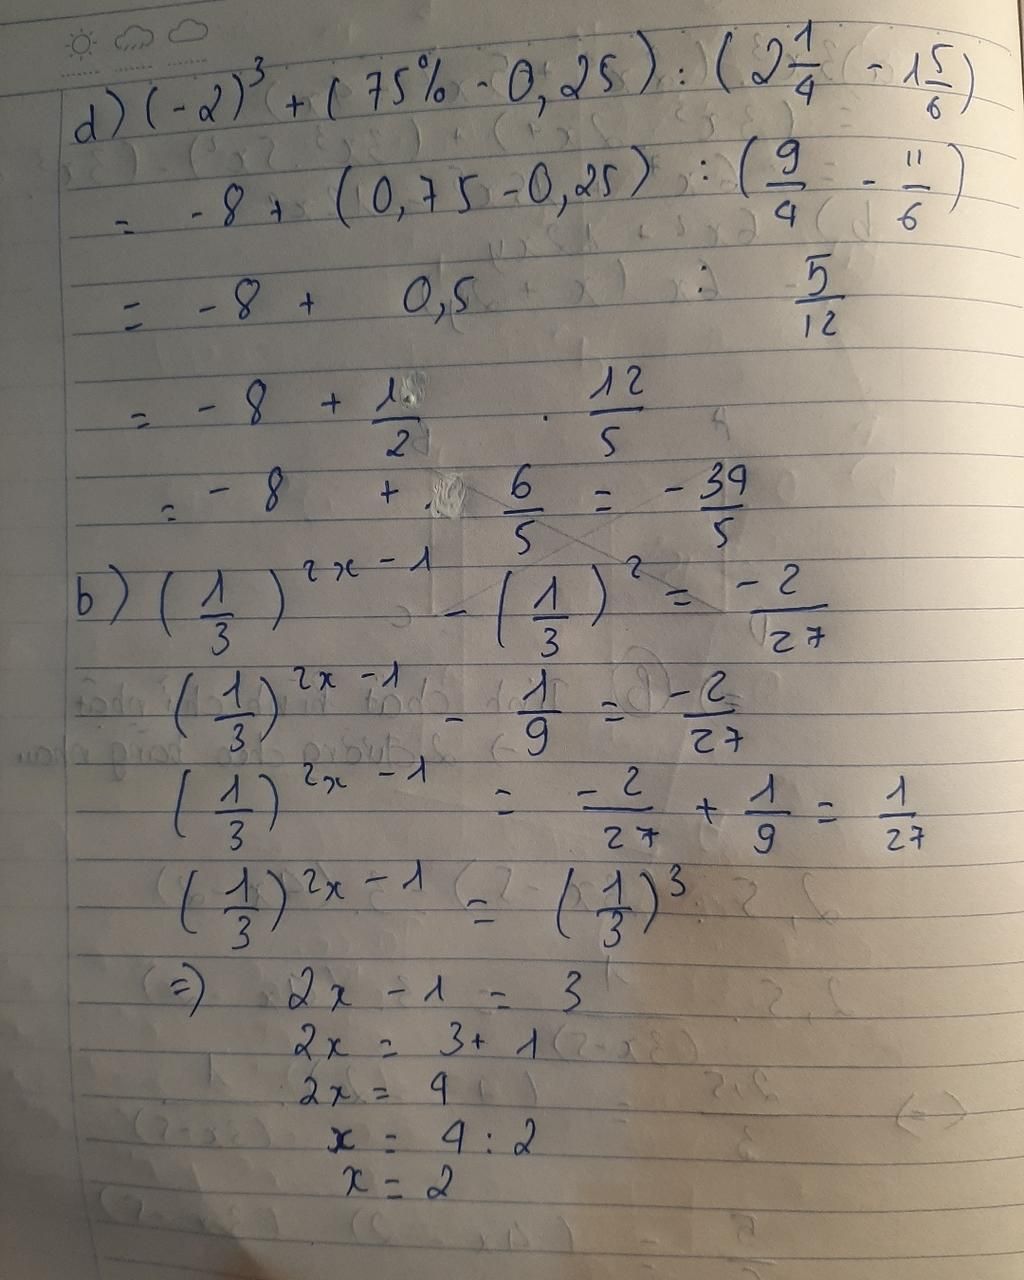 d) (-2)³ + (75% - 0,25) : (2 1/4 - 1 5/6)
= -8 + (0,75 - 0,25) : (9/4 - 11/6)
= -8 + 0,5 : 5/12
= -8 + 1/2 . 12/5
= -8 + 6/5 = -39/5
b) (1/3)^(2x - 1) - (1/3)² = -2/27
(1/3)^(2x - 1) - 1/9 = -2/27
(1/3)^(2x - 1) = -2/27 + 1/9 = 1/27
(1/3)^(2x - 1) = (1/3)³
=) 2x - 1 = 3
2x = 3 + 1
2x = 4
x = 4 : 2
x = 2